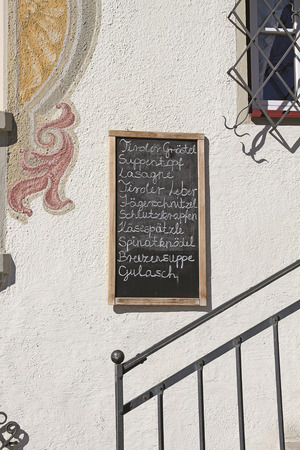 Tiroler Gröstel
Suppentopf
Lasagne
Tiroler Leber
Jägerschnitzel
Schlutzkrapfen
Käsespätzle
Spinatknödel
Brezensuppe
Gulasch